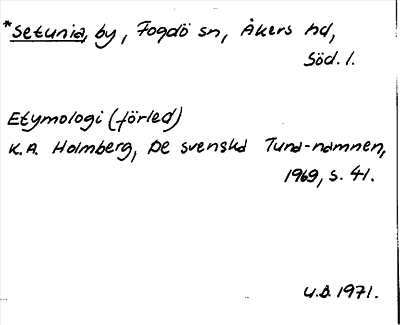 *Setunia, by, Fogdö sn, Åkers hd,
Söd. l.
Etymologi (förled)
K.A. Holmberg, De svenska Tuna-namnen,
1969, s. 41.
U.D. 1971.